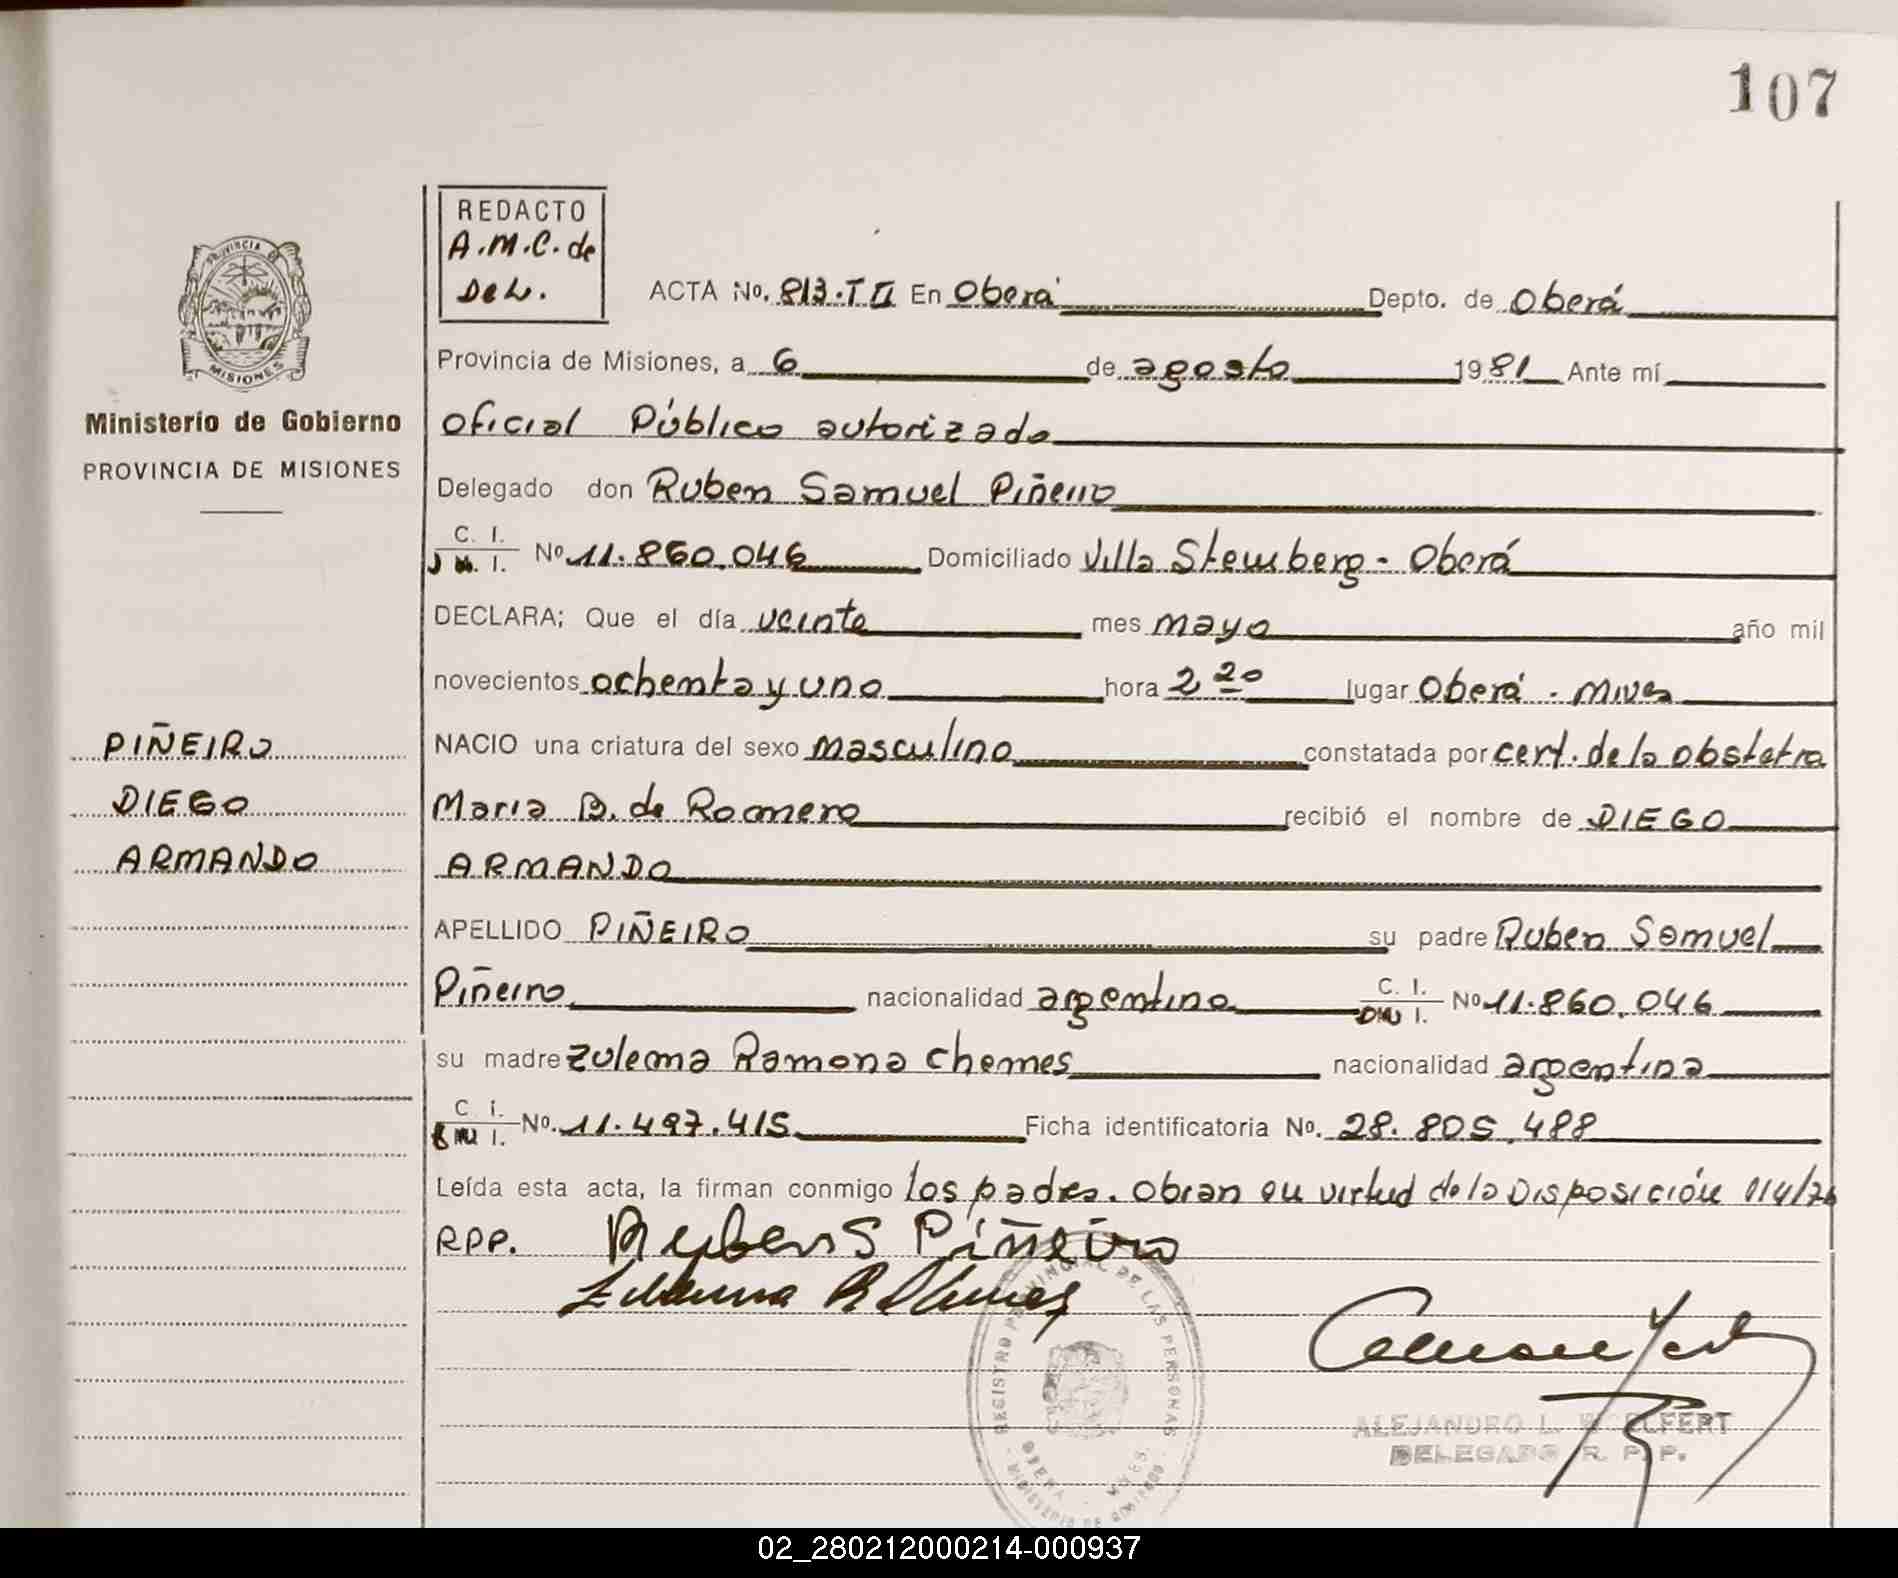 107
REDACTO
A.M.C. de
Del.
PROVINCIA DE
MISIONES
ACTA No. 813.T II En Oberá Depto. de Oberá
Provincia de Misiones, a 6 de agosto 1981 Ante mí
Ministerio de Gobierno
PROVINCIA DE MISIONES
Oficial Público autorizado
Delegado don Ruben Samuel Piñeiro
C. I.
M. I. No 11.860.046 Domiciliado Villa Stemberg - Oberá
DECLARA; Que el día veinte mes mayo año mil
novecientos ochenta y uno hora 2 20 lugar Oberá - Mnes
PIÑEIRO
DIEGO
ARMANDO
NACIO una criatura del sexo masculino constatada por cert. de la obstetra
Maria B. de Romero recibió el nombre de DIEGO
ARMANDO
APELLIDO PIÑEIRO su padre Ruben Samuel
Piñeiro nacionalidad argentina C. I.
DNI I. No 11.860.046
su madre Zulema Ramona Chemes nacionalidad argentina
C. I.
I. No. 11.497.415 Ficha identificatoria No. 28.805.488
Leída esta acta, la firman conmigo los padres. Obran en virtud de la Disposición 114/76
RPP. Ruben S Piñeiro
Zulema R Chemes
REGISTRO PROVINCIAL DE LAS PERSONAS
OBERA MNES.
MINISTERIO DE GOBIERNO
ALEJANDRO L. WOELFERT
DELEGADO R. P. P.
02_280212000214-000937